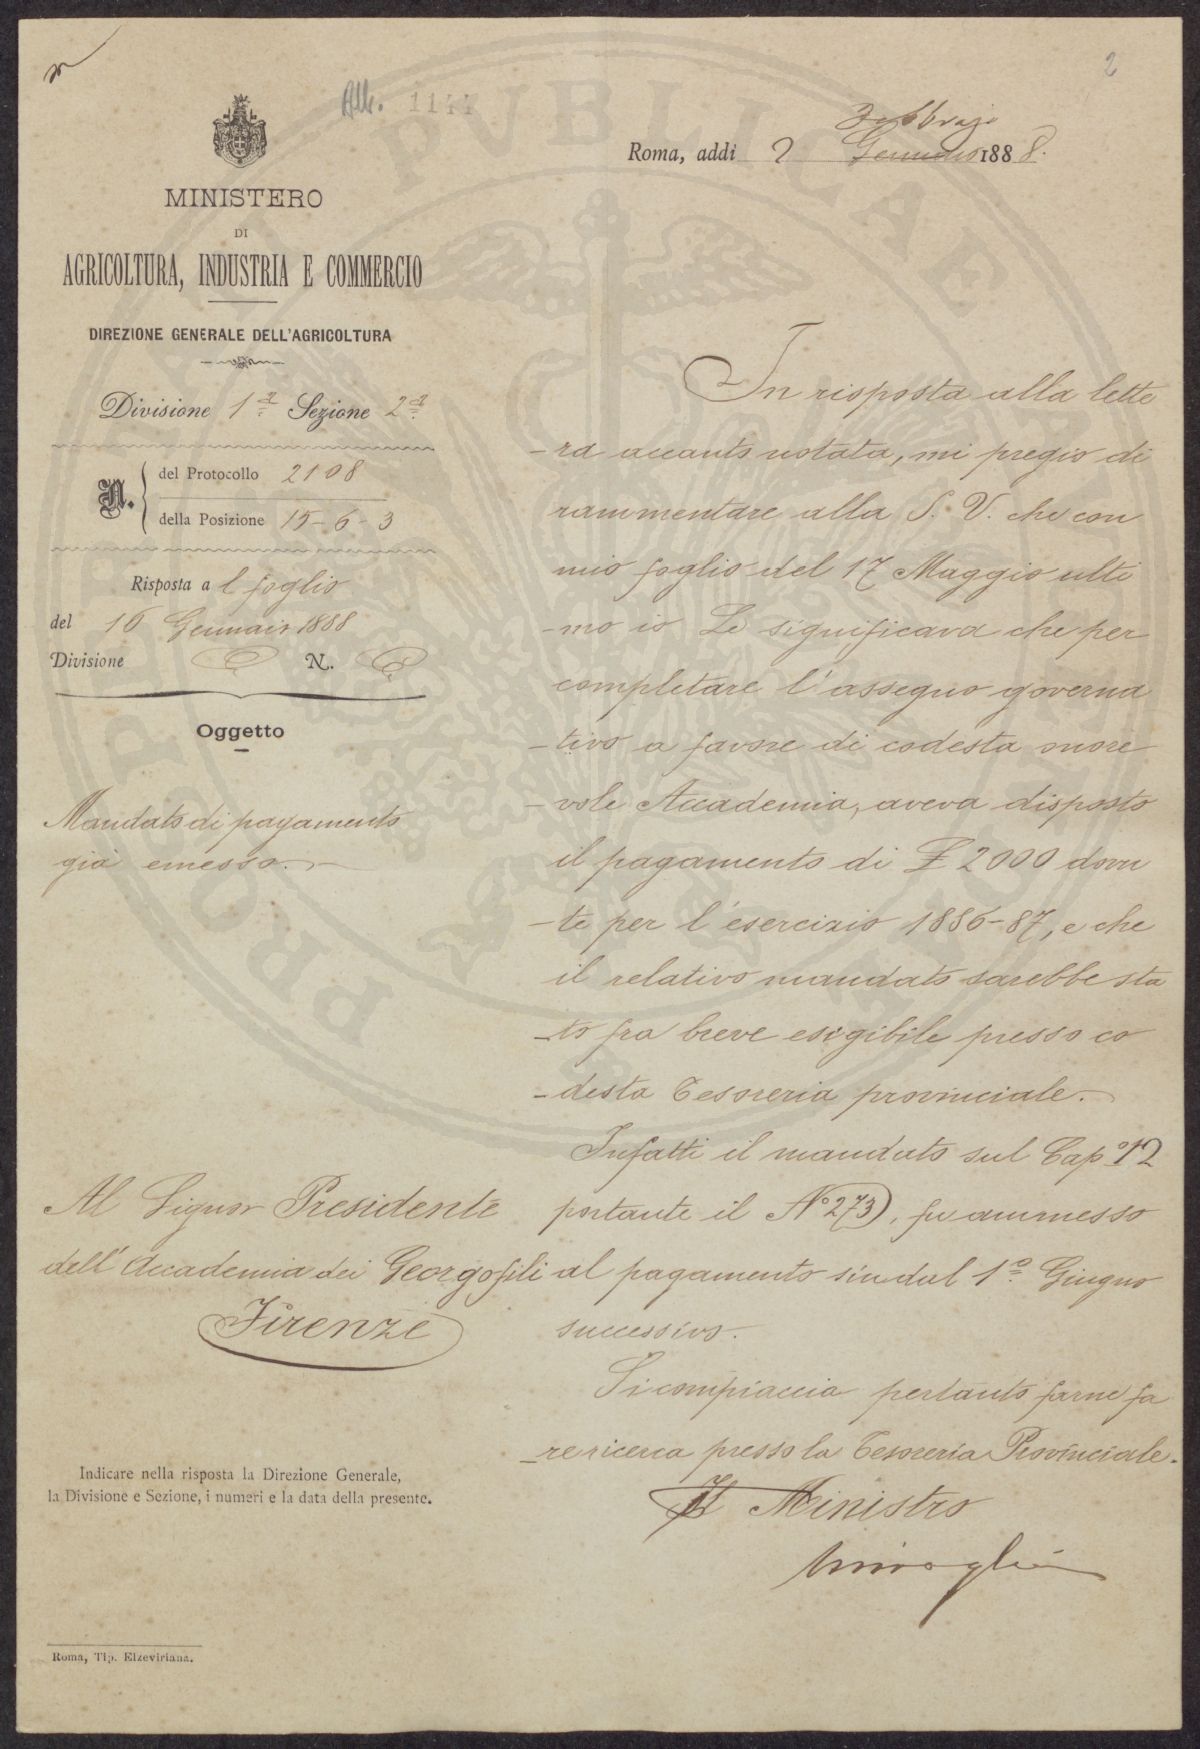 2
All. 1144
Roma, addì 2 Gennaio Febbraio 1888.
MINISTERO
DI
AGRICOLTURA, INDUSTRIA E COMMERCIO
DIREZIONE GENERALE DELL'AGRICOLTURA
Divisione 1ª Sezione 2ª
N. del Protocollo 2108
della Posizione 15-6-3
Risposta al foglio
del 16 Gennaio 1888
Divisione N.
Oggetto
Mandato di pagamento
già emesso.
Al Signor Presidente
dell'Accademia dei Georgofili
Firenze
Indicare nella risposta la Direzione Generale,
la Divisione e Sezione, i numeri e la data della presente.
Roma, Tip. Elzeviriana.
In risposta alla lette
-ra accanto notata, mi pregio di
rammentare alla S. V. che con
mio foglio del 17 Maggio ulti
-mo io Le significava che per
completare l'assegno governa
-tivo a favore di codesta onore
-vole Accademia, aveva disposto
il pagamento di £ 2000 dovu
-te per l'esercizio 1886-87, e che
il relativo mandato sarebbe sta
-to fra breve esigibile presso co
-desta Tesoreria provinciale.
Infatti il mandato sul Capº 12
portante il Nº 273, fu ammesso
al pagamento sin dal 1º Giugno
successivo.
Si compiaccia pertanto farne fa
-re ricerca presso la Tesoreria Provinciale.
Il Ministro
PUBLICAE